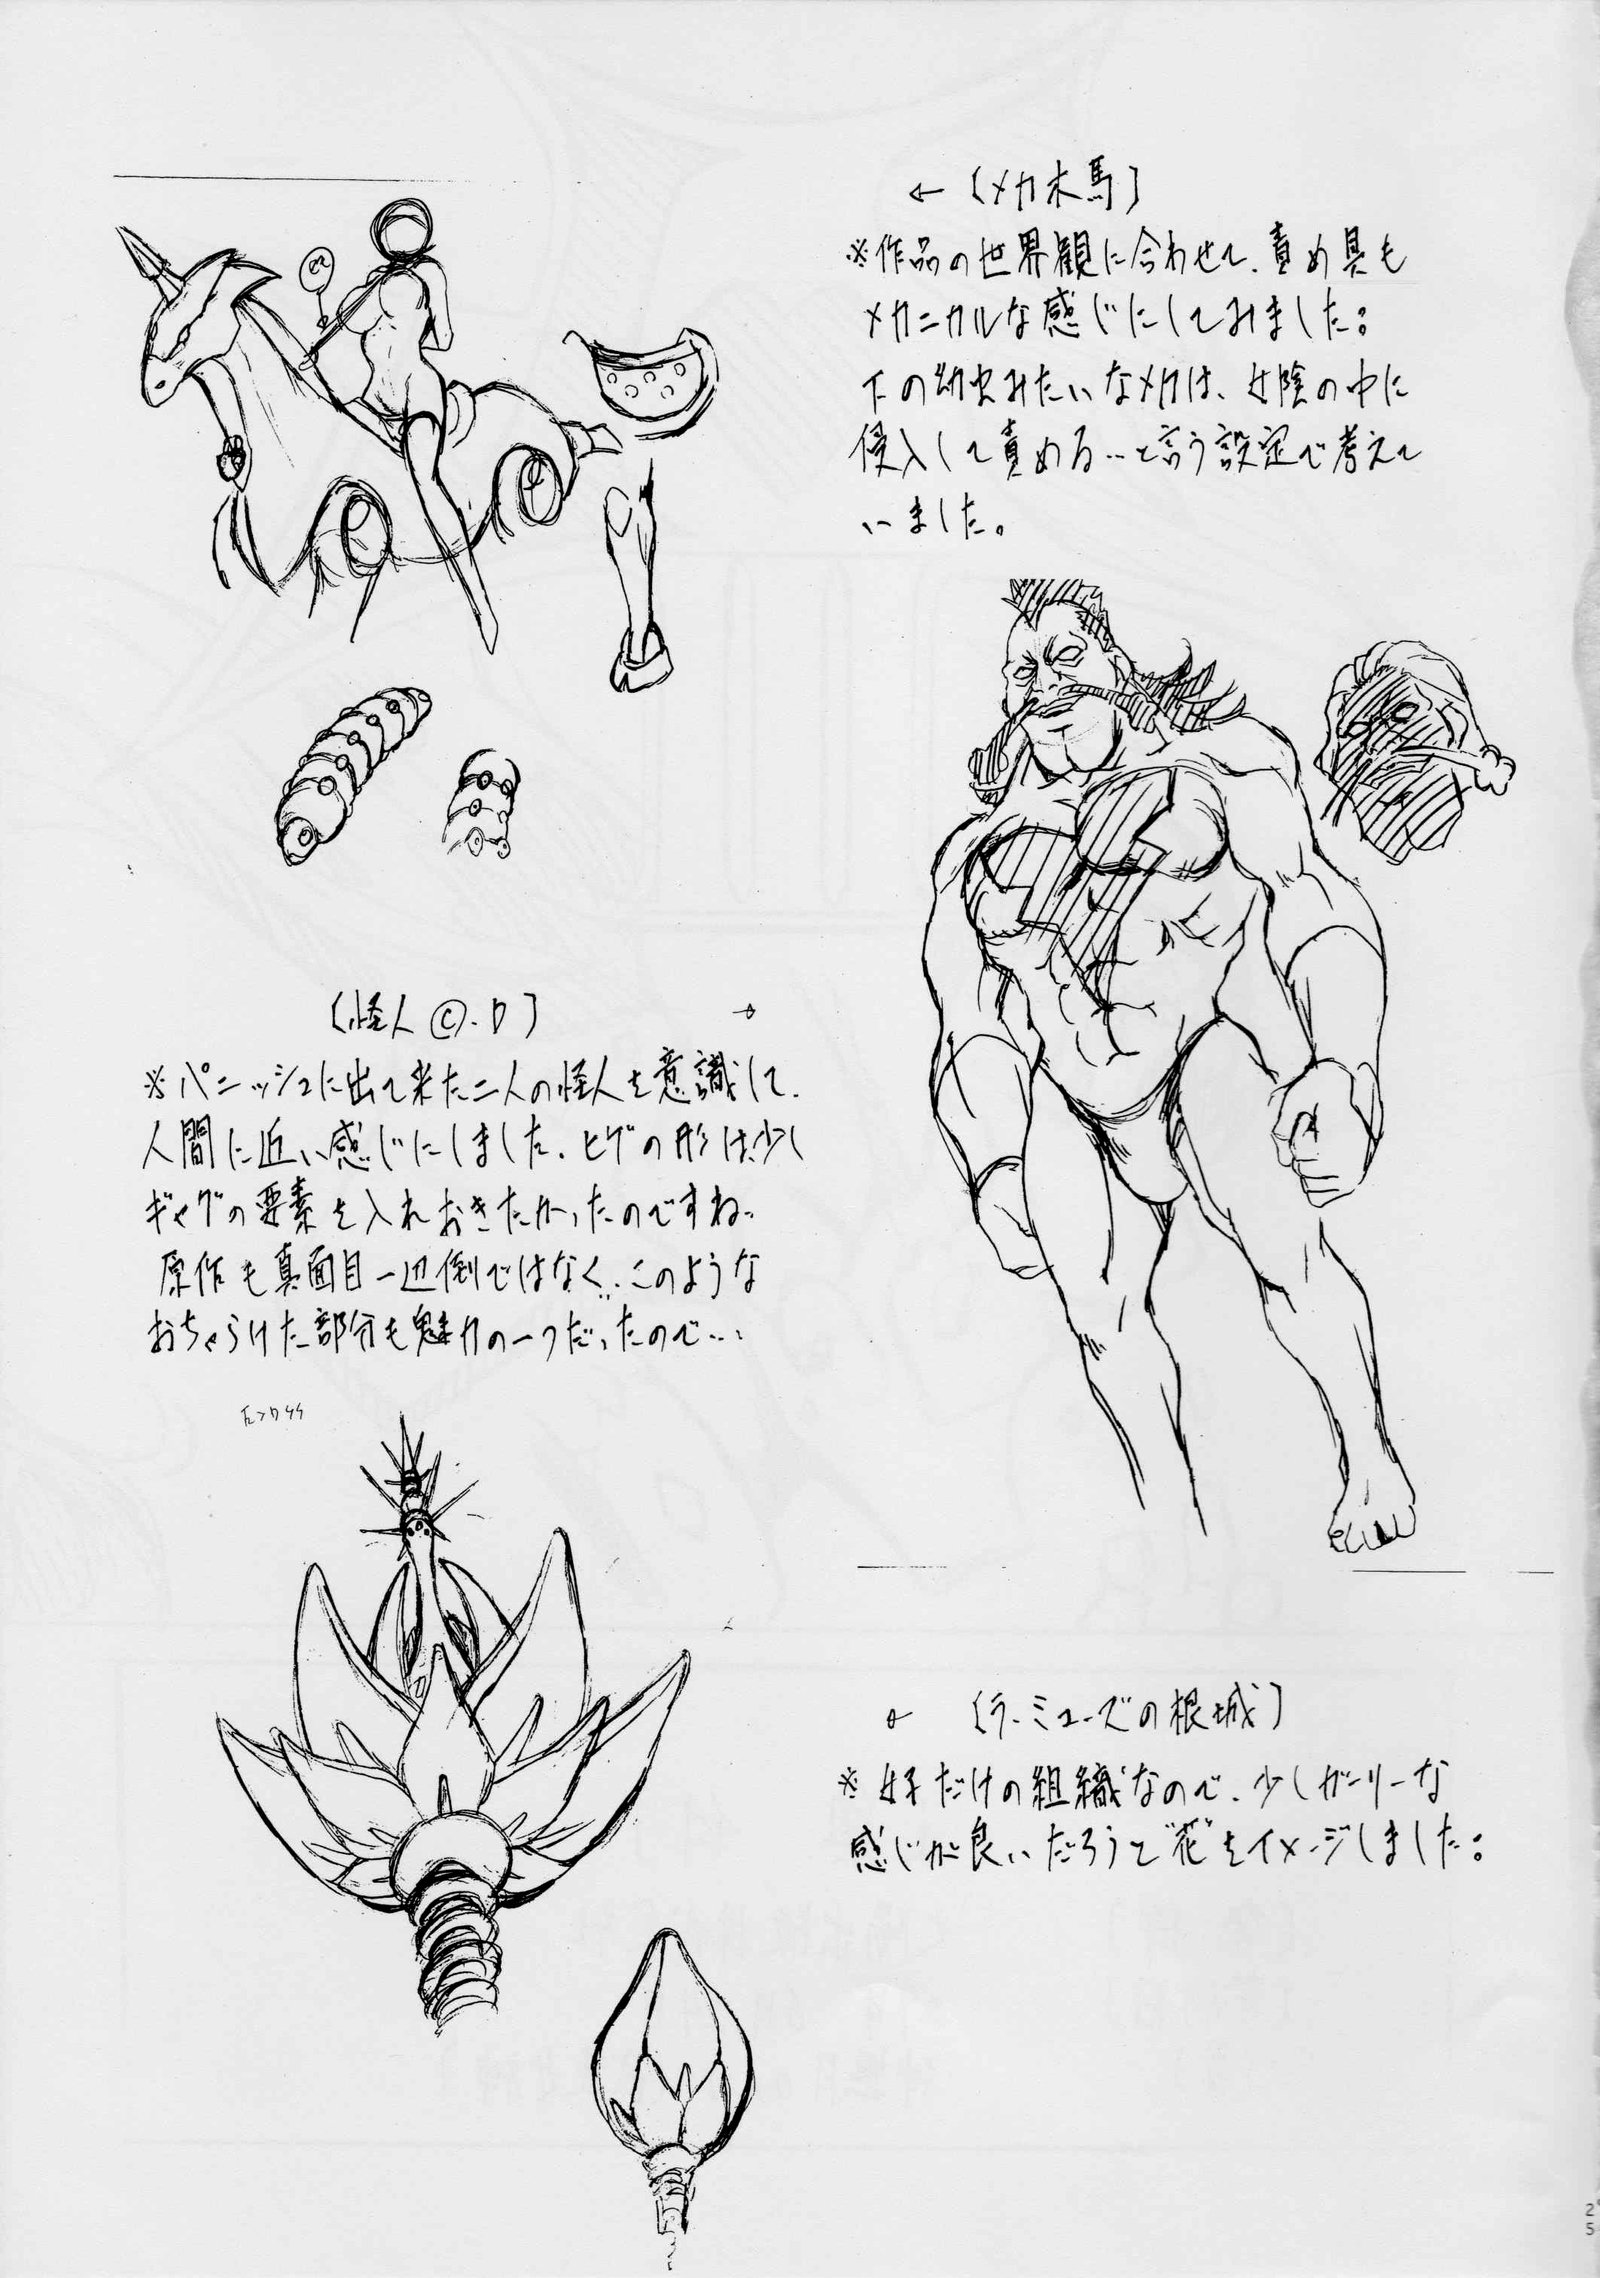 ← 〔メカ木馬〕
※作品の世界観に合わせて、責め具も
メカニカルな感じにしてみました。
下の幼虫みたいなメカは、女陰の中に
侵入して責める…と言う設定で考えて
いました。
〔怪人Ⓒ.D〕 →
※パニッシュに出て来た二人の怪人を意識して、
人間に近い感じにしました。ヒゲの形は少し
ギャグの要素を入れおきたかったのですね。
原作も真面目一辺倒ではなく、このような
おちゃらけた部分も魅力の一つだったので…
← 〔ラ・ミューズの根城〕
※女子だけの組織なので、少しガーリーな
感じが良いだろうと"花"をイメージしました。
2
5